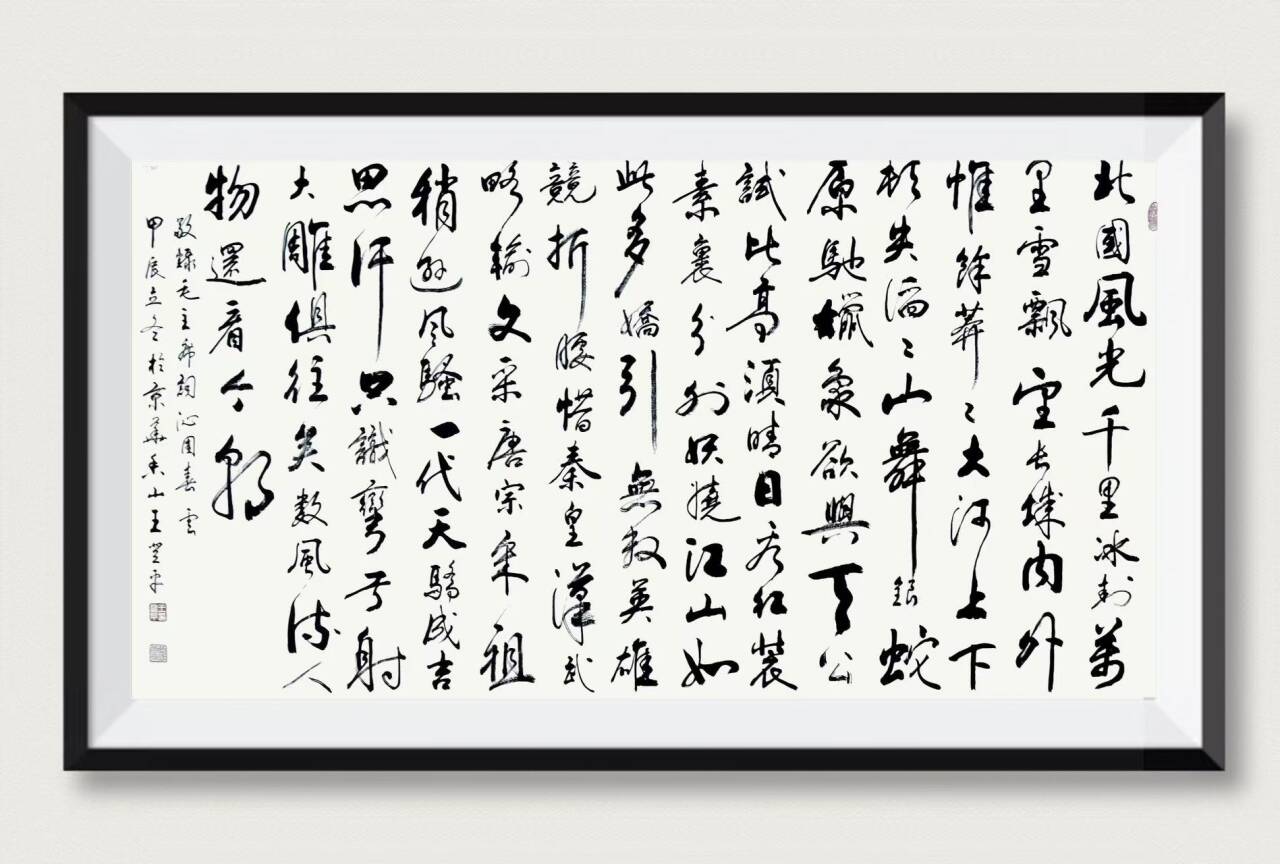 北國風光千里冰封萬
里雪飄望长城内外
惟餘莽〻大河上下
頓失滔〻山舞銀蛇
原馳蠟象欲與天公
試比高須晴日看紅裝
素裹分外妖嬈江山如
此多嬌引無數英雄
競折腰惜秦皇漢武
略輸文采唐宗宋祖
稍遜风騷一代天驕成吉
思汗只識彎弓射
大雕俱往矣數風流人
物還看今朝
敬録毛主席詞沁園春雪
甲辰立冬於京華香山王登平